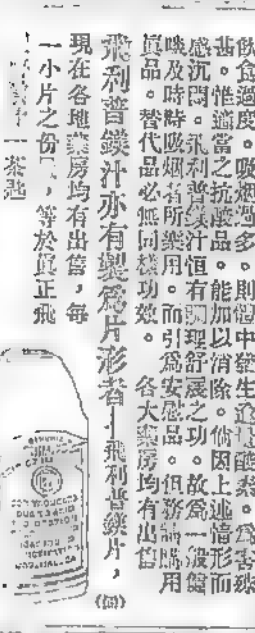 飲食過度。吸烟過多。則胃中發生過量酸素。爲害綦
甚。惟適當之抗酸品。能加以消除。倘因上述情形而
感沉悶。飛利普鎂汁恒有調理舒展之功。故爲一般饕
餮及時時吸烟者所樂用。而引爲安慰品。但務請購用
眞品。替代品必無同樣功效。 各大藥房均有出售
飛利普鎂汁亦有製爲片形者—飛利普鎂片，
現在各地藥房均有出售，每
一小片之份量，等於眞正飛
一茶匙